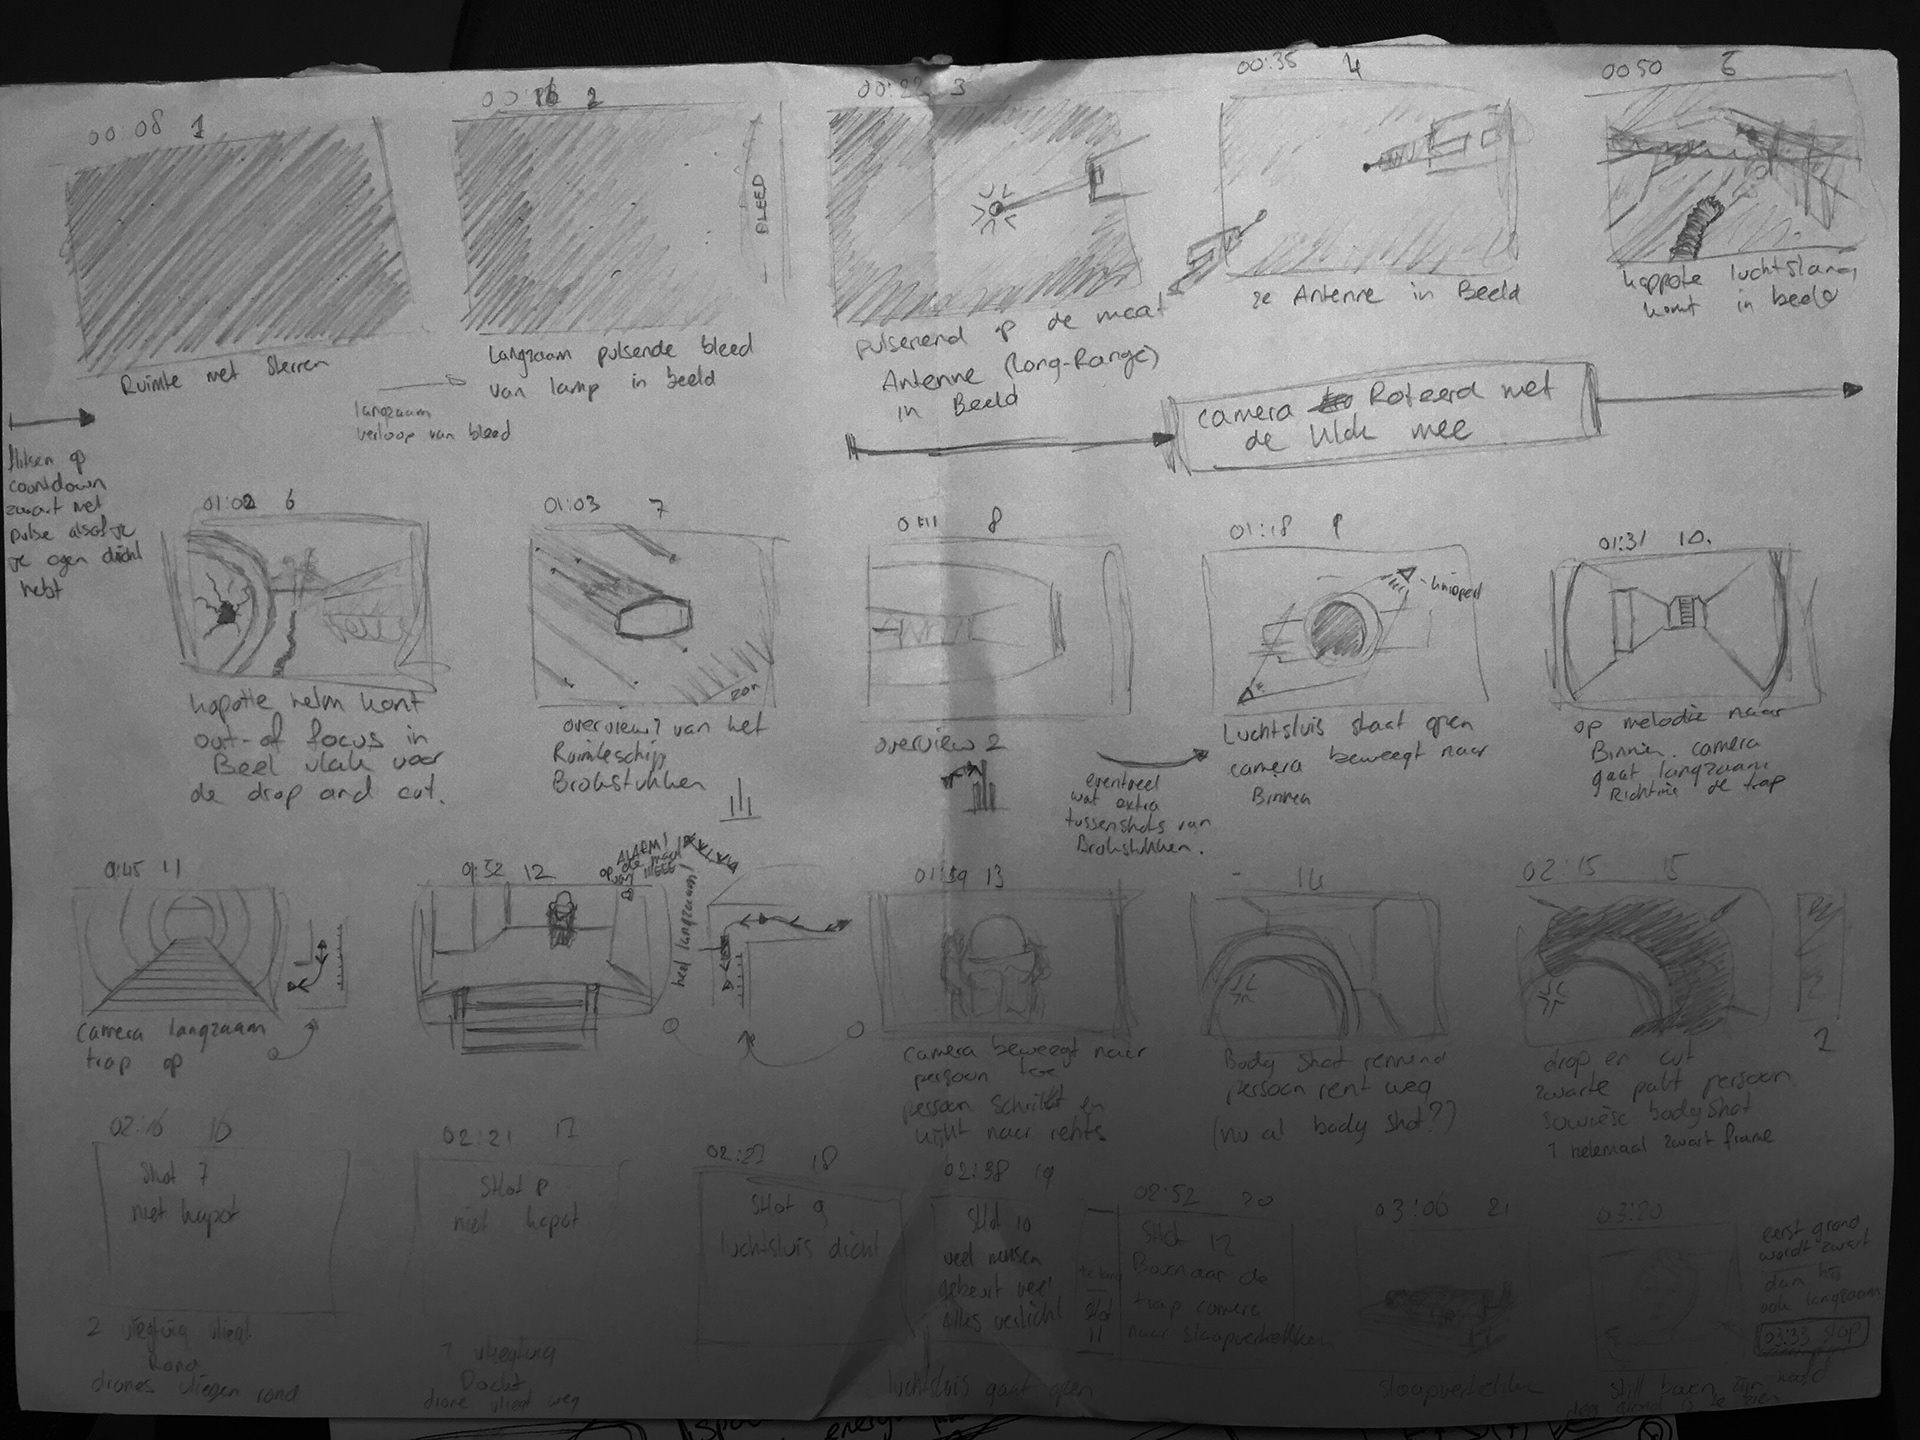 00:08 1
Ruimte met Sterren
00:16 2
BLEED
Langzaam pulsende bleed
van lamp in beeld
langzaam
verloop van bleed
00:22 3
pulserend op de maat
Antenne (Long-Range)
in Beeld
00:35 4
2e Antenne in Beeld
00 50
kappote luchtslang
komt in beeld
camera Roteerd met
de klok mee
flitsen op
countdown
zwart met
pulse alsof je
je ogen dicht
hebt
01:02 6
kapotte helm komt
out-of focus in
Beel vlak voor
de drop and cut.
01:03 7
zon
overview? van het
Ruimteschip
Brokstukken
0:11 8
overview 2
eventueel
wat extra
tussenshots van
Brokstukken.
01:18 9
- knipperd
Luchtsluis staat open
camera beweegt naar
Binnen
01:31 10.
op melodie naar
Binnen. camera
gaat langzaam
Richting de trap
01:45 11
camera langzaam
trap op
01:52 12
ALARM!
op de maat
van
heel langzaam!
01:59 13
camera beweegt naar
persoon toe
persoon schrikt en
kijkt naar rechts
- 14
Body shot rennend
persoon rent weg
(nu al body shot??)
02:15 15
drop en cut
zwarte pakt persoon
sowiese bodyshot
1 helemaal zwart frame
02:16 16
Shot 7
niet kapot
2 vliegtuig vliegt
Rond
drones vliegen rond
02:21 17
Shot 8
niet kapot
1 vliegtuig
Docht
drone vliegt weg
02:27 18
Shot 9
luchtsluis dicht
luchtsluis gaat open
02:38 19
Shot 10
veel mensen
gebeurt veel
Alles verlicht
Shot
11
02:52 20
Shot 12
Bovenaar de
trap camera
naar slaapvertrekken
03:06 21
slaapvertrekken
03:20
still boven zijn hoofd
eerst grond
wordt zwart
dan hij
ook langzaam
03:33 stop